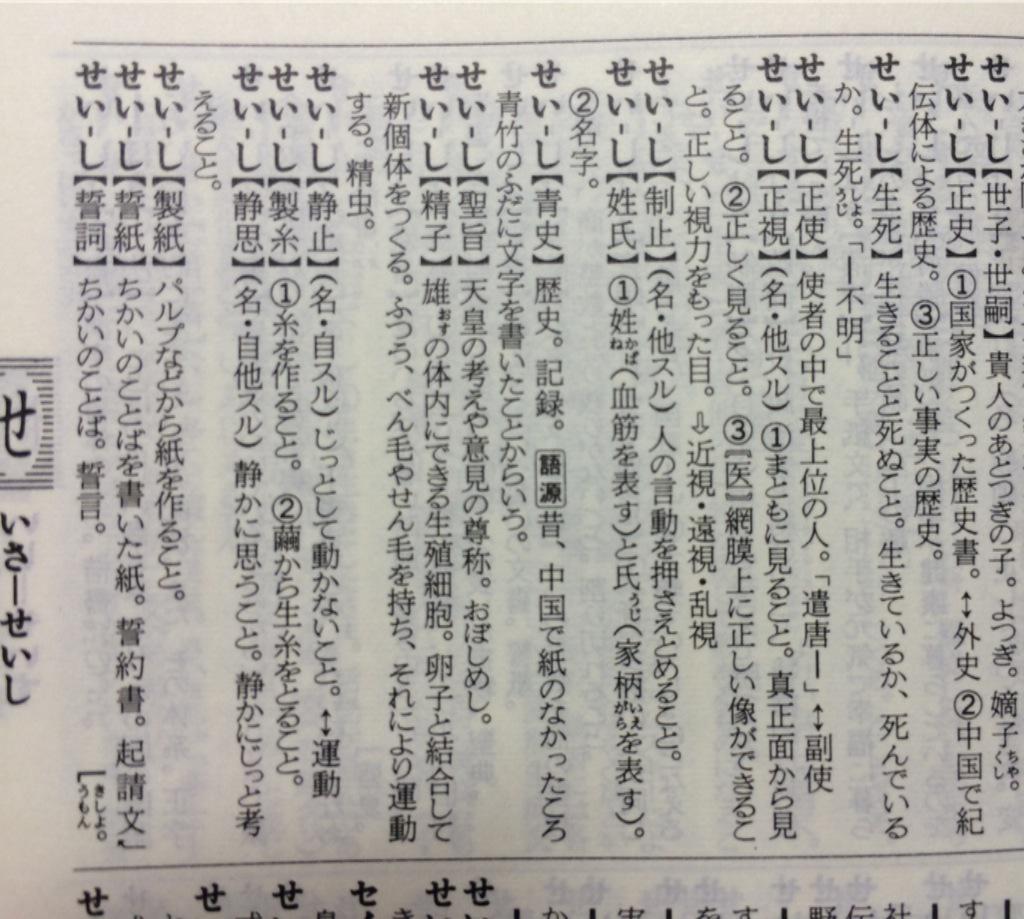 せい‐し【世子・世嗣】貴人のあとつぎの子。よつぎ。嫡子ちゃくし。
せい‐し【正史】①国家がつくった歴史書。↕外史 ②中国で紀
伝体による歴史。③正しい事実の歴史。
せい‐し【生死】生きることと死ぬこと。生きているか、死んでいる
か。生死しょうじ。「―不明」
せい‐し【正使】使者の中で最上位の人。「遣唐―」↕副使
せい‐し【正視】(名・他スル)①まともに見ること。真正面から見
ること。②正しく見ること。③〔医〕網膜上に正しい像ができるこ
と。正しい視力をもった目。⇩近視・遠視・乱視
せい‐し【制止】(名・他スル)人の言動を押さえとめること。
せい‐し【姓氏】①姓かばね(血筋を表す)と氏うじ(家柄いえがらを表す)。
②名字。
せい‐し【青史】歴史。記録。語源昔、中国で紙のなかったころ
青竹のふだに文字を書いたことからいう。
せい‐し【聖旨】天皇の考えや意見の尊称。おぼしめし。
せい‐し【精子】雄おすの体内にできる生殖細胞。卵子と結合して
新個体をつくる。ふつう、べん毛やせん毛を持ち、それにより運動
する。精虫。
せい‐し【静止】(名・自スル)じっとして動かないこと。↕運動
せい‐し【製糸】①糸を作ること。②繭から生糸をとること。
せい‐し【静思】(名・自他スル)静かに思うこと。静かにじっと考
えること。
せい‐し【製紙】パルプなどから紙を作ること。
せい‐し【誓紙】ちかいのことばを書いた紙。誓約書。起請文
[きしょうもん。
せい‐し【誓詞】ちかいのことば。誓言。
せ
いさ―せいし